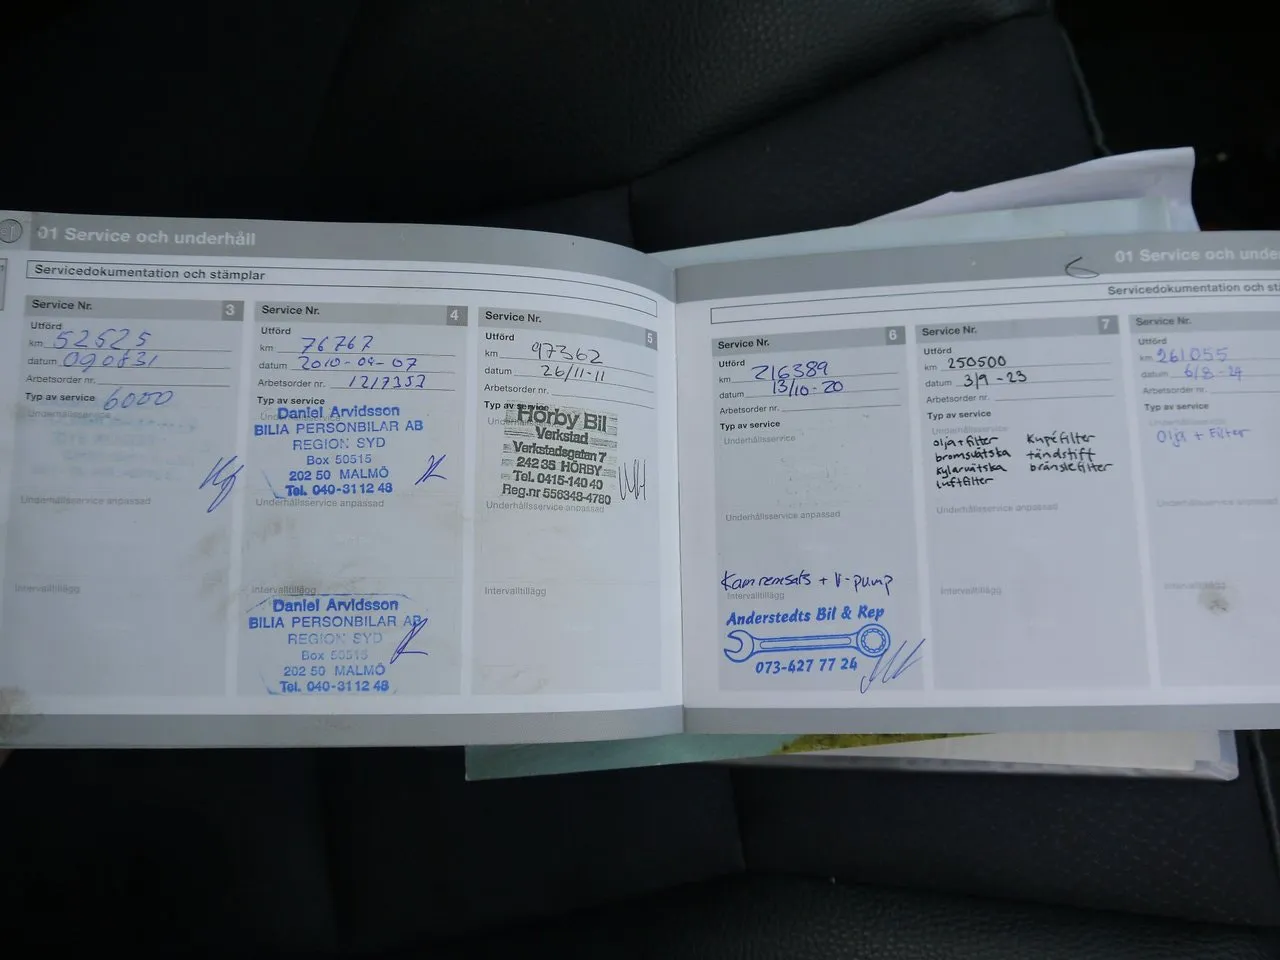 01 Service och underhåll
Servicedokumentation och stämplar
Service Nr. 3
Utförd
km 52525
datum 090831
Arbetsorder nr.
Typ av service 6000
Underhållsservice
Underhållsservice anpassad
Intervalltillägg
Service Nr. 4
Utförd
km 76767
datum 2010-09-07
Arbetsorder nr. 1217353
Typ av service
Daniel Arvidsson
BILIA PERSONBILAR AB
REGION SYD
Box 50515
202 50 MALMÖ
Tel. 040-31 12 48
Underhållsservice anpassad
Intervalltillägg
Daniel Arvidsson
BILIA PERSONBILAR AB
REGION SYD
Box 50515
202 50 MALMÖ
Tel. 040-31 12 48
Service Nr. 5
Utförd
km 97362
datum 26/11-11
Arbetsorder nr.
Typ av service
Hörby Bil
Verkstad
Verkstadsgatan 7
242 35 HÖRBY
Tel. 0415-140 40
Reg.nr 556348-4780
Underhållsservice anpassad
Intervalltillägg
6
01 Service och unde
Servicedokumentation och stä
Service Nr. 6
Utförd
km 216389
datum 13/10-20
Arbetsorder nr.
Typ av service
Underhållsservice
Underhållsservice anpassad
Kamremsats + V-pump
Intervalltillägg
Anderstedts Bil & Rep
073-427 77 24
Service Nr. 7
Utförd
km 250500
datum 3/9-23
Arbetsorder nr.
Typ av service
Underhållsservice
olja + filter Kupéfilter
bromsvätska tändstift
kylarvätska bränslefilter
luftfilter
Underhållsservice anpassad
Intervalltillägg
Service Nr.
Utförd
km 261055
datum 6/8-24
Arbetsorder nr.
Typ av service
Underhållsservice
Olja + Filter
Underhållsservice anpassad
Intervalltillägg